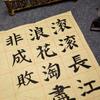 滾滾長江
浪花淘盡
非成敗